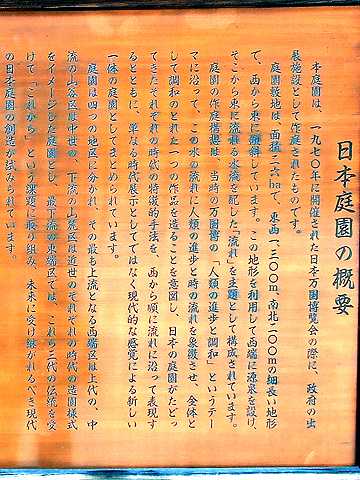 日本庭園の概要
本庭園は、一九七〇年に開催された日本万国博覧会の際に、政府の出
展施設として作庭されたものです。
庭園敷地は、面積二六haで、東西一、三〇〇m、南北二〇〇mの細長い地形
で、西から東に傾斜しています。この地形を利用して西端に源泉を設け、
そこから東に流れる水流を配した「流れ」を主題として構成されています。
庭園の作庭構想は、当時の万国博の「人類の進歩と調和」というテー
マに沿って、この水の流れに人類の進歩と時の流れを象徴させ、全体と
して調和のとれた一つの作品を造ることを意図し、日本の庭園がたどっ
てきたそれぞれの時代の特徴的手法を、西から順に流れに沿って表現す
るとともに、単なる時代展示としてではなく現代的な感覚による新しい
一体の庭園としてまとめられています。
庭園は四つの地区に分かれ、その最も上流となる西端区は上代の、中
流の山谷区は中世の、下流の山麓区は近世のそれぞれの時代の造園様式
をイメージした庭園とし、最下流の東端区では、これら三代の伝統を受
けて「これから」という課題に取り組み、未来に受け継がれるべき現代
の日本庭園の創造が試みられています。